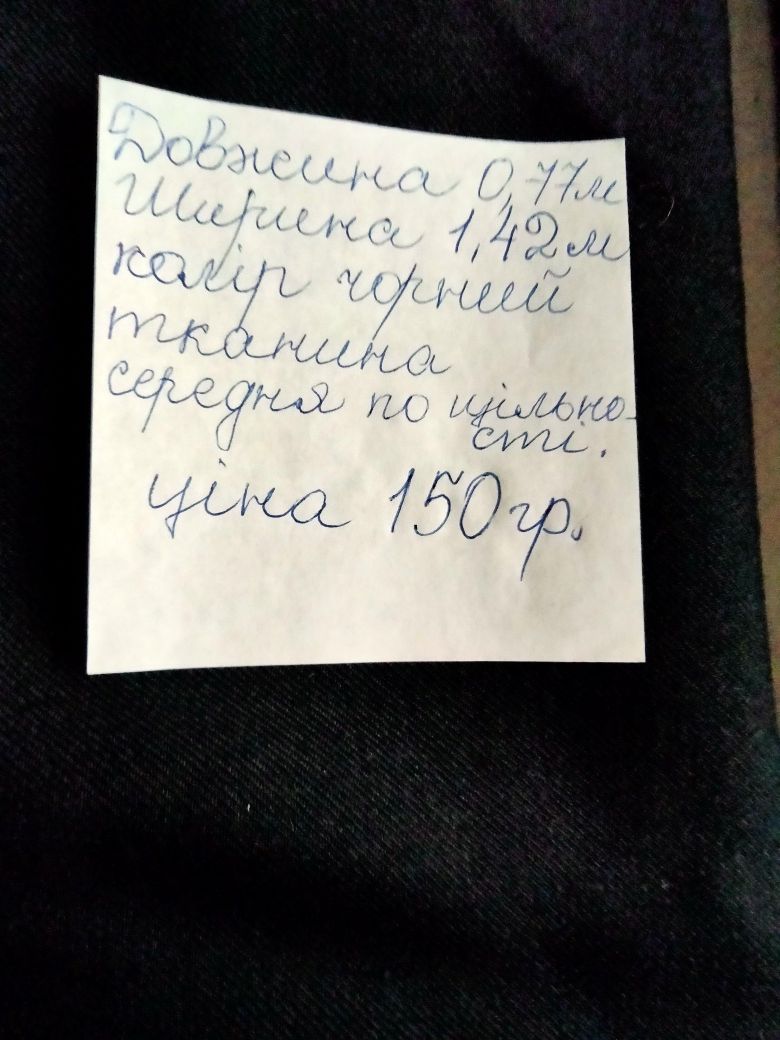 Довжина 0,77м
Ширина 1,42м
колір чорний
тканина
середня по щільно-
сті.
ціна 150 гр.